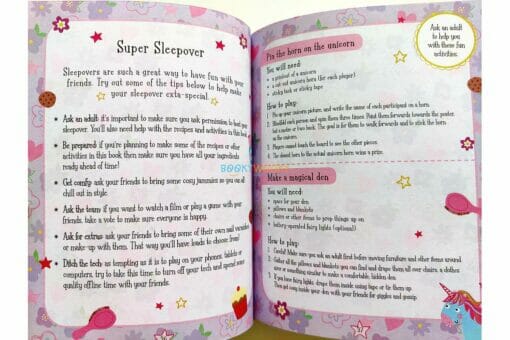 Super Sleepover
Sleepovers are such a great way to have fun with your
friends. Try out some of the tips below to help make
your sleepover extra-special.
• Ask an adult: it's important to make sure you ask permission to host your
sleepover. You'll also need help with the recipes and activities in this book.
• Be prepared: if you're planning to make some of the recipes or other
activities in this book then make sure you have all your ingredients
ready ahead of time!
• Get comfy: ask your friends to bring some cosy jammies so you can all
chill out in style.
• Ask the team: if you want to watch a film or play a game with your
friends, take a vote to make sure everyone is happy.
• Ask for extras: ask your friends to bring some of their own nail varnishes
or make-up with them. That way you'll have loads to choose from!
• Ditch the tech: as tempting as it is to play on your phones, tablets or
computers, try to take this time to turn off your tech and spend some
quality offline time with your friends.
BOOKY
Ask an adult
to help you
with these fun
activities.
Pin the horn on the unicorn
You will need:
• a printout of a unicorn
• a cut-out unicorn horn (for each player)
• sticky tack or sticky tape
How to play:
1. Pin up your unicorn picture, and write the name of each participant on a horn.
2. Blindfold each person and spin them three times. Point them forwards towards the poster,
but a metre or two back. The goal is for them to walk forwards and to stick the horn
on the unicorn.
3. Players cannot touch the board to see the other pieces.
4. The closest horn to the actual unicorn horn wins a prize.
Make a magical den
You will need:
• space for your den
• pillows and blankets
• chairs or other items to prop things up on
• battery operated fairy lights (optional!)
How to play:
1. Careful! Make sure you ask an adult first before moving furniture and other items around
2. Gather all the pillows and blankets you can find and drape them all over chairs, a clothes
airer or something similar to make a comfortable, hidden den.
3. If you have fairy lights, drape them inside using tape or tie them up
Then get cosy inside your den with your friends for giggles and gossip.